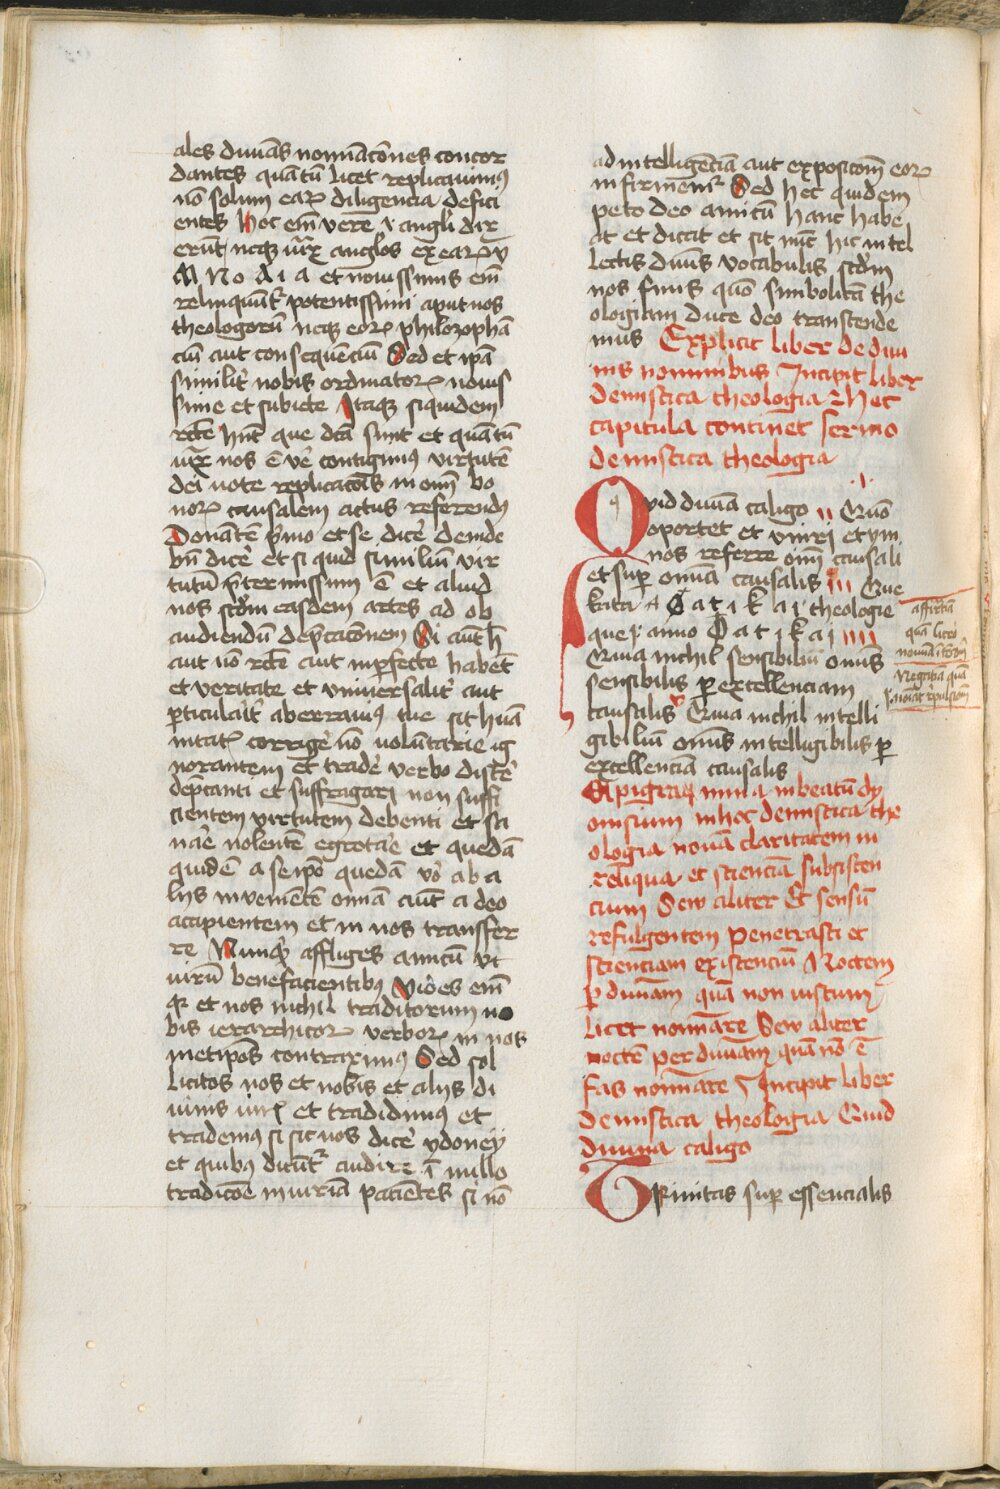 ales diuiãs noĩacõnes concor
dantes quãtũ licet replicauimꝰ
nõ solum eaꝝ diligencia defici
entes hoc em̃ vere ⁊ angli dix
erũt neqꝫ iux̃ anglos ex eaꝝ
et nouissimis em̃
relinquũtʳ potentissimi aput nos
theologorũ neqꝫ eoꝝ philozophã
ciũ aut consequenciũ Sed et ipã
similit̃ nobis ordinatoꝝ nouis
sime et subiecte Itaqꝫ siquidem
rc̃te hñt que dc̃a sunt et quãtũ
iux̃ nos ẽ vẽ contigimꝰ virtutẽ
dei uote replicacõis in om̃ bo
noꝝ causalem actus referendꝰ
Donãtẽ p̃mo et se dicẽ deinde
bñ dicẽ et si quid similiũ vir
tutũ p̃termissum ẽ et aliud
nos sc̃dm easdem artes ad ob
audiendũ dep̃cacõnem Si aut̃ h̃
aut nõ rc̃te aut inperfecte habet
et veritate et vniuersalit̃ aut
ꝑticulãit̃ aberrauimꝰ tue sit huã
nitatꝭ corrigẽ nõ uolũtarie ig
norantem Et tradẽ verbo discẽ
dep̃canti et suffragari non suffi
cientem virtutem debenti et sa
nãe nolentẽ egrotãe et quedã
quidẽ a seip̃o quedã võ ab a
lijs inuenientẽ omnã aut̃ a deo
accipientem et in nos transfer
re Nunqꝫ affliges amicũ vt
uirũ benefacientibꝰ vides em̃
qꝛ et nos nichil traditorum no
bis ierarchicoꝝ verboꝝ in nos
metip̃os contraximꝰ Sed sol
licitos nos et nobis et alijs di
uinis et tradidimꝰ et
trademꝰ si sic nos dicẽ ydoney
et quibꝰ dicũtʳ audire ĩ nullo
tradicõe iniuriã pacientes si nõ
ad intelligẽciã aut exposicõm eoꝝ
infirmem̃ Sed hec quidem
peto deo amicũ hanc habe
at et dicat et sit nũc hic intel
lectis diuis vocabulis sc̃dm
nos finis quõ simbolicã the
ologiam duce deo transcende
mus Explicit liber de diui
nis nominibus Incipit liber
de mistica theologia ⁊ hec
capitula continet sermo
de mistica theologia
Quid diuiã caligo ıı Quõ
oportet et vniri et ym
nos referre om̃i causali
et sup̃ omniã causalis ııı Que
kata Φ a t i k a i theologie
que apo Φ a t i k a i ıııı
Quia nichil sensibiliũ omnis
sensibilis ꝑ excellenciam
causalis v Quia nichil intelli
gibiliũ omnis intelligibilis ꝑ
excellenciã causalis
affirtiã
quã licet
noĩacõem
Negatiã quã
Epigrama in beatũ dy
onisium in hoc de mistica the
ologia nouã claritatem in
reliqua et scienciã subsisten
cium Sew aliter Et sensũ
refulgentem penetrasti et
scienciam existenciũ Noctem
ꝑ diuinam quã non iustum
licet nominare Sew aliter
noctẽ per diuinam quã nõ ẽ
fas nominare Incipit liber
de mistica theologia Quid
diuina caligo
Trinitas sup̃ essencialis